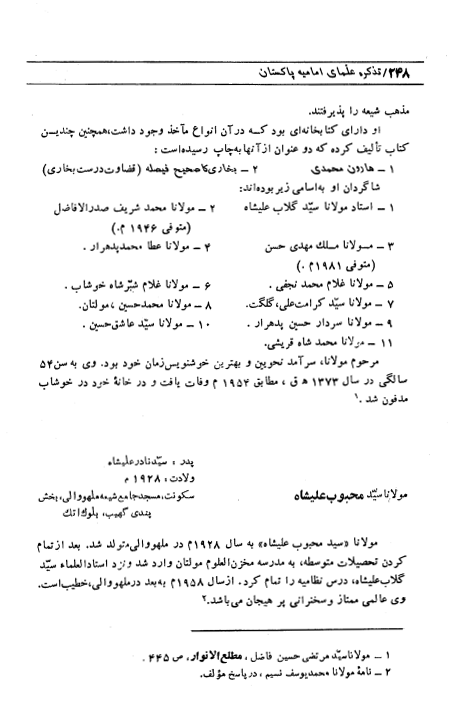 ۲۴۸/تذکره علمای امامیه پاکستان
مذهب شیعه را پذیرفتند.
او دارای کتابخانه‌ای بود کـه درآن انواع مآخذ وجود داشت،همچنین چندیـن
کتاب تألیف کرده که دو عنوان ازآنها به‌چاپ رسیده‌است:
۱ – هارون محمدی    ۲ – بخاری‌کا صحیح فیصله (قضاوت درست بخاری)
شاگردان او به‌اسامی زیر بوده‌اند:
۱ – استاد مولانا سیّد گلاب علیشاه    ۲ – مولانا محمد شریف صدرالافاضل
(متوفی ۱۹۴۶ م.)
۳ – مـولانا مـلك مهدی حسن    ۴ – مولانا عطا محمدپدهرار .
(متوفی ۱۹۸۱م .)
۵ – مولانا غلام محمد نجفی .    ۶ – مولانا غلام شبّرشاه خوشاب .
۷ – مولانا سیّد کرامت‌علی،گلگت.    ۸ – مولانا محمدحسین ،مولتان.
۹ – مولانا سردار حسین پدهرار .    ۱۰ – مولانا سیّد عاشق‌حسین .
۱۱ – مولانا محمد شاه قریشی.
مرحوم مولانا، سرآمد نحویین و بهترین خوشنویس‌زمان خود بود. وی به سن۵۴
سالگی در سال ۱۳۷۳ ه ق ، مطابق ۱۹۵۴ م وفات یافت و در خانهٔ خود در خوشاب
مدفون شد .۱
پدر : سیّدنادرعلیشاه
ولادت: ۱۹۲۸ م
مولاناسیّد محبوب‌علیشاه    سکونت،مسجدجامع‌شیعه‌ملهووالی،بخش
پندی گهیب، بلوك‌اتك
مولانا «سید محبوب علیشاه» به سال ۱۹۲۸م در ملهووالی‌متولد شد. بعد ازتمام
کردن تحصیلات متوسطه، به مدرسه مخزن‌العلوم مولتان وارد شد ونزد استادالعلماء سیّد
گلاب‌علیشاه، درس نظامیه را تمام کرد. ازسال ۱۹۵۸م به‌بعد درملهووالی،خطیب‌است.
وی عالمی ممتاز وسخنرانی پر هیجان می‌باشد.۲
۱ – مولاناسیّد مرتضی حسین فاضل ، مطلع‌الانوار، ص ۴۴۵ .
۲ – نامهٔ مولانا محمدیوسف نسیم ، درپاسخ مؤلف.